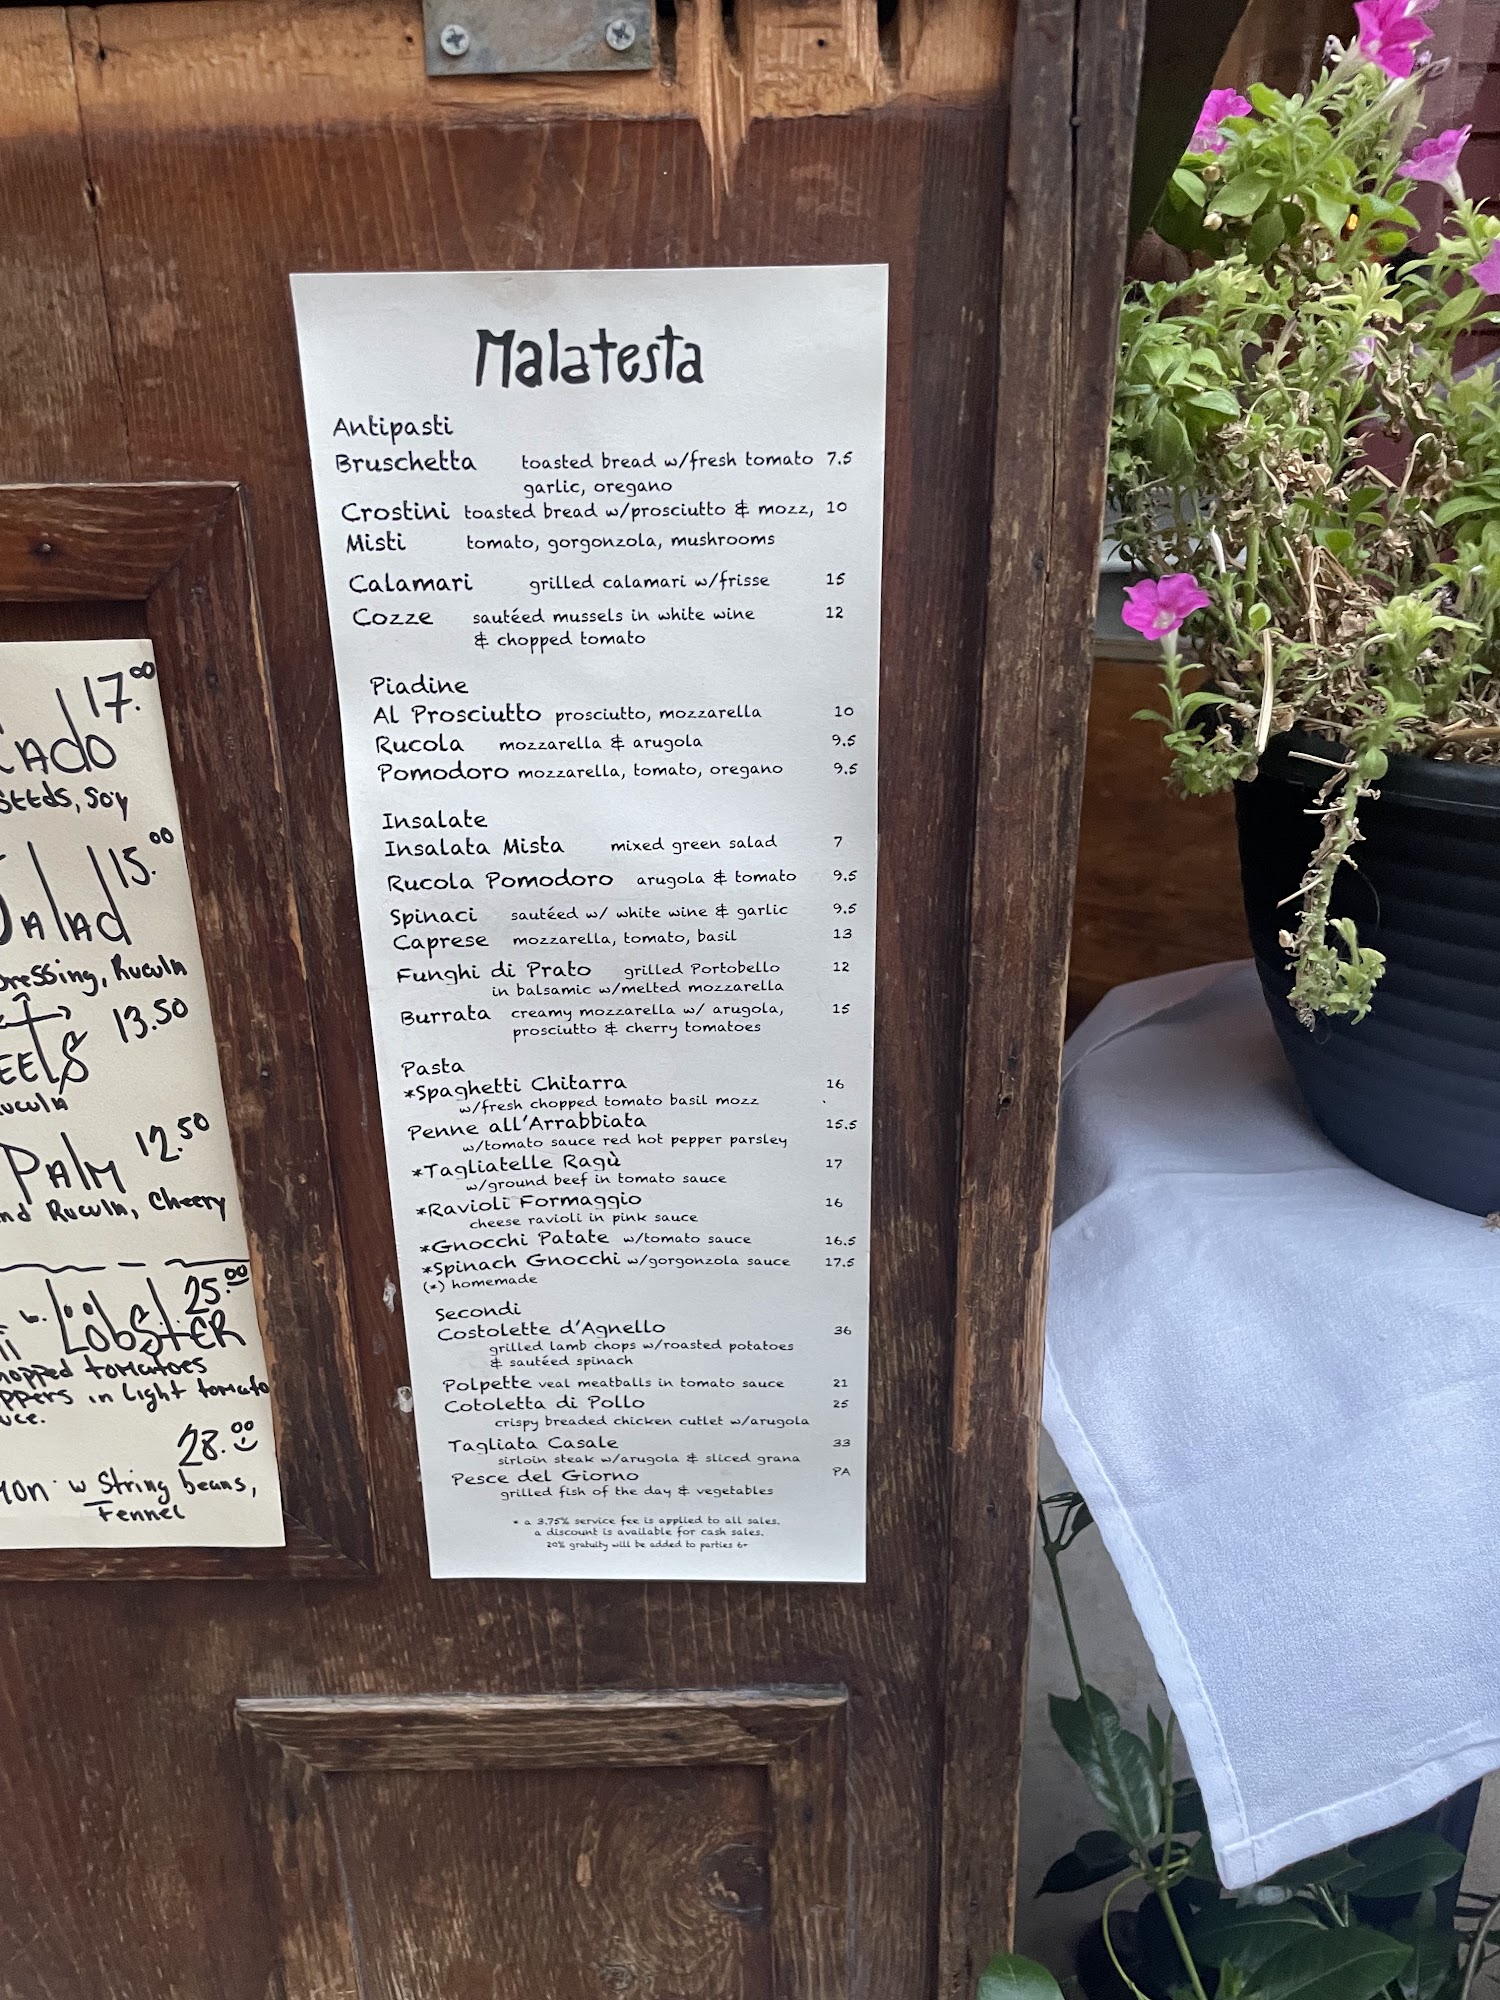 Malatesta
Antipasti
Bruschetta toasted bread w/fresh tomato 7.5
garlic, oregano
Crostini toasted bread w/prosciutto & mozz, 10
Misti tomato, gorgonzola, mushrooms
Calamari grilled calamari w/frisse 15
Cozze sautéed mussels in white wine 12
& chopped tomato
Piadine
Al Prosciutto prosciutto, mozzarella 10
Rucola mozzarella & arugola 9.5
Pomodoro mozzarella, tomato, oregano 9.5
Insalate
Insalata Mista mixed green salad 7
Rucola Pomodoro arugola & tomato 9.5
Spinaci sautéed w/ white wine & garlic 9.5
Caprese mozzarella, tomato, basil 13
Funghi di Prato grilled Portobello 12
in balsamic w/melted mozzarella
Burrata creamy mozzarella w/ arugola, 15
prosciutto & cherry tomatoes
Pasta
*Spaghetti Chitarra 16
w/fresh chopped tomato basil mozz
Penne all'Arrabbiata 15.5
w/tomato sauce red hot pepper parsley
*Tagliatelle Ragù 17
w/ground beef in tomato sauce
*Ravioli Formaggio 16
cheese ravioli in pink sauce
*Gnocchi Patate w/tomato sauce 16.5
*Spinach Gnocchi w/gorgonzola sauce 17.5
(*) homemade
Secondi
Costolette d'Agnello 36
grilled lamb chops w/roasted potatoes
& sautéed spinach
Polpette veal meatballs in tomato sauce 21
Cotoletta di Pollo 25
crispy breaded chicken cutlet w/arugola
Tagliata Casale 33
sirloin steak w/arugola & sliced grana
Pesce del Giorno PA
grilled fish of the day & vegetables
* a 3.75% service fee is applied to all sales.
a discount is available for cash sales.
20% gratuity will be added to parties 6+
17.00
Soy
15.00
Salad
Dressing, Rucula
13.50
12.50
Palm
Rucula, Cheery
25.00
Lobster
tomatoes
in light tomato
28.00
w String beans,
Fennel